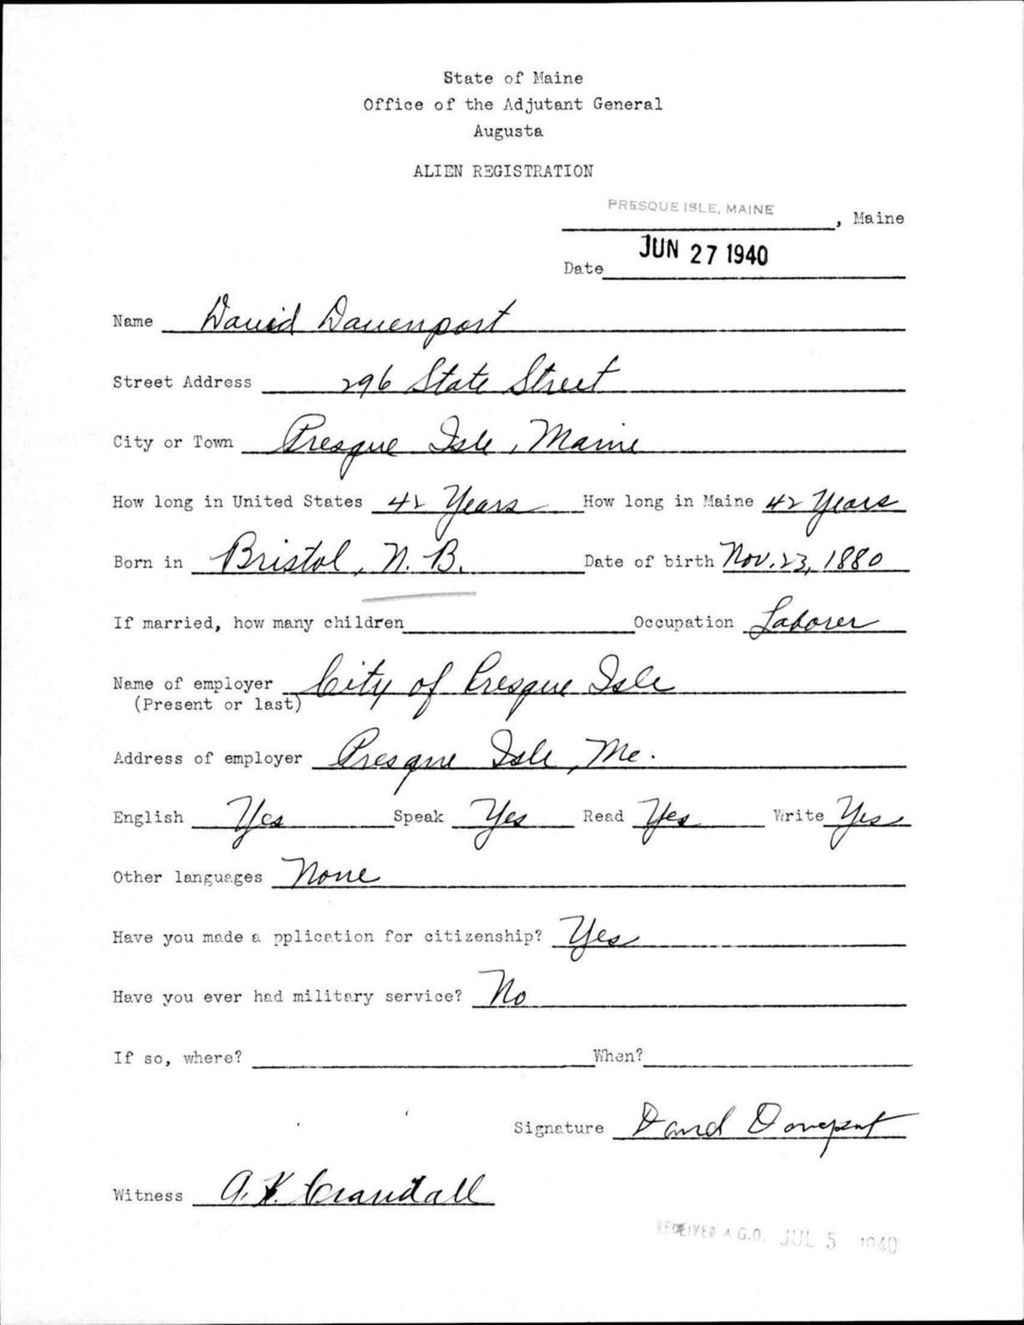 State of Maine
Office of the Adjutant General
Augusta
ALIEN REGISTRATION
PRESQUE ISLE, MAINE, Maine
Date JUN 27 1940
Name David Davenport
Street Address 296 State Street
City or Town Presque Isle, Maine
How long in United States 42 Years How long in Maine 42 Years
Born in Bristol, N. B. Date of birth Nov. 23, 1880
If married, how many children Occupation Laborer
Name of employer City of Presque Isle
(Present or last)
Address of employer Presque Isle, Me.
English Yes Speak Yes Read Yes Write Yes
Other languages None
Have you made a pplication for citizenship? Yes
Have you ever had military service? No
If so, where? When?
Signature David Davenport
Witness A. K. Crandall
RECEIVED A.G.O. JUL 5 1940